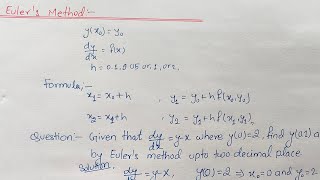 Euler's Method:-
y(x₀) = y₀
dy/dx = f(x)
h = 0.1, 0.05 or, 1, or 2.
Formula:-
x₁ = x₀ + h , y₁ = y₀ + h f(x₀, y₀)
x₂ = x₁ + h , y₂ = y₁ + h f(x₁, y₁)
Question:- Given that dy/dx = y-x where y(0)=2, find y(0.2) a
by Euler's method upto two decimal place
Solution, dy/dx = y-x, y(0)=2 ⇒ x₀=0 and y₀=2